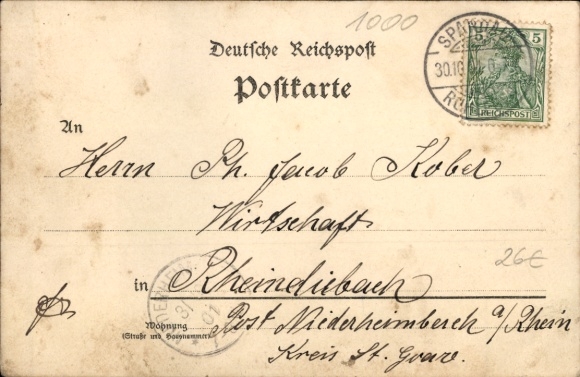 1000
Deutsche Reichspost
Postkarte
SPANDAU
30.10.
5
REICHSPOST
An
Herrn Ph. Jacob Kober
Wirtschaft
26€
in Rheindiebach
Wohnung
(Straße und Hausnummer)
Post Niederheimbach a/Rhein
Kreis St. Goar.